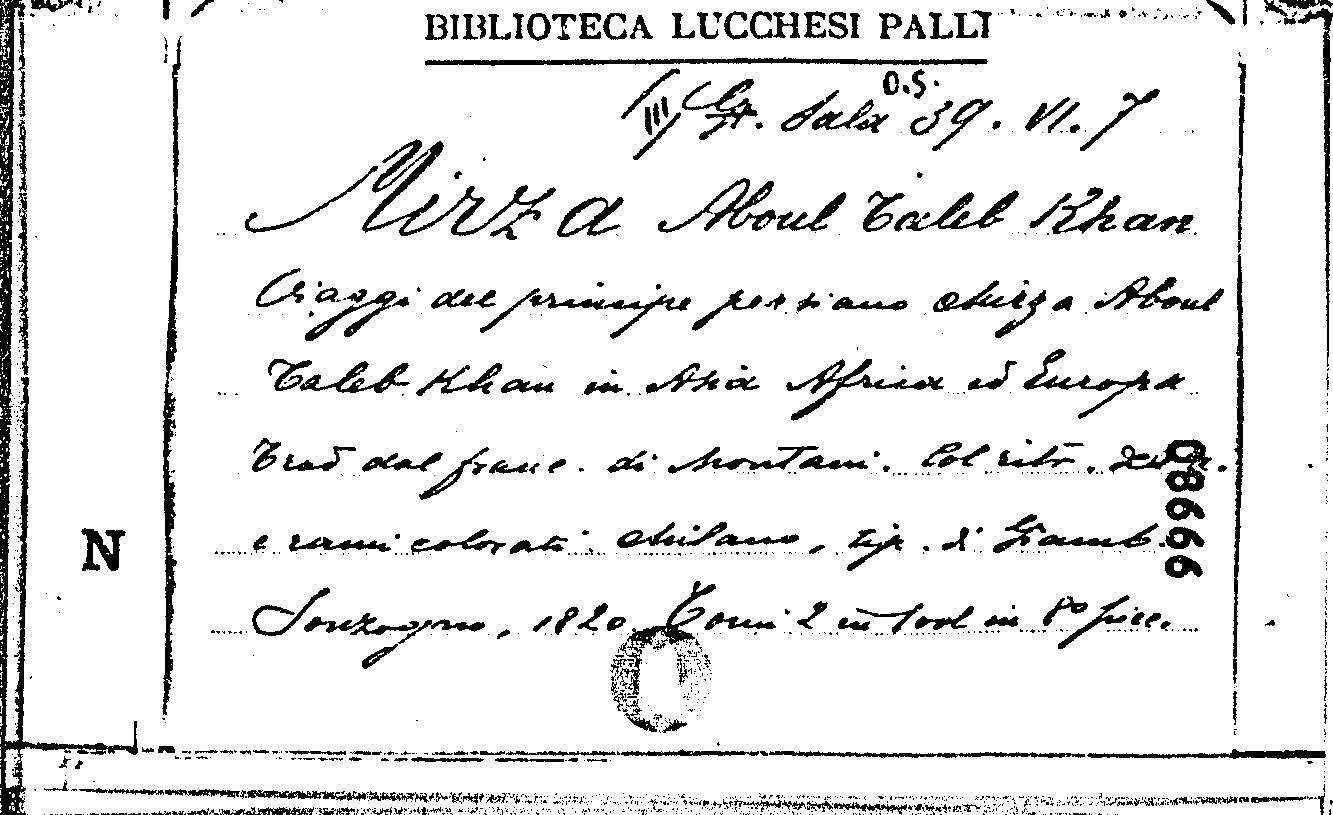 BIBLIOTECA LUCCHESI PALLI
O.S.
III Gr. Sala 39. VI. 7
Mirza Aboul Taleb Khan
Viaggi del principe persiano Mirza Aboul
Taleb Khan in Asia Africa ed Europa
Trad dal franc. di Montani. Col ritr.
e rami colorati. Milano, tip. di Giamb.
Sonzogno, 1820 Tomi 2 in 1 vol in 8° picc.
N
08666